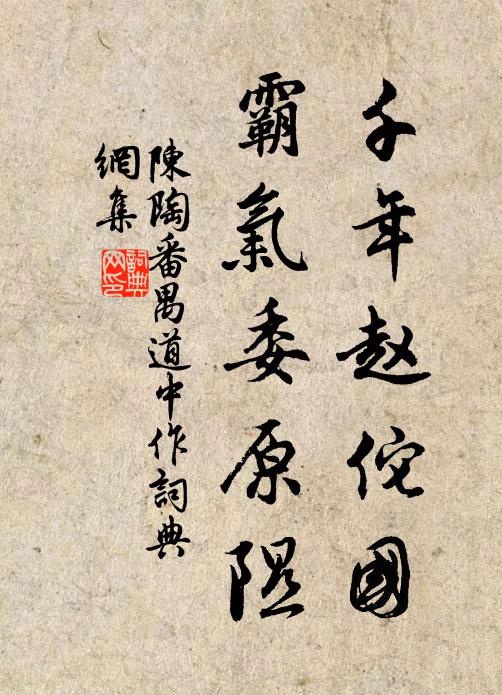 千年赵佗國
霸氣委原隰
陳陶番禺道中作詞典
網集
詞典
网印